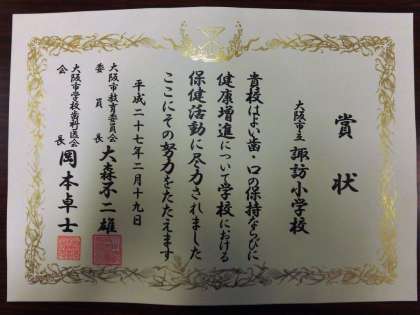 賞状
大阪市立 諏訪小学校
貴校はよい歯・口の保持ならびに
健康増進について学校における
保健活動に尽力されました
ここにその努力をたたえます
平成二十七年二月十九日
大阪市教育委員会
委員長 大森不二雄
大阪市学校歯科医会
会長 岡本卓士